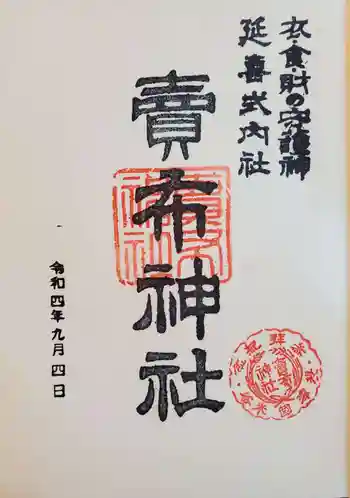 衣・食・財の守護神
延喜式内社
賣布神社
令和四年九月四日